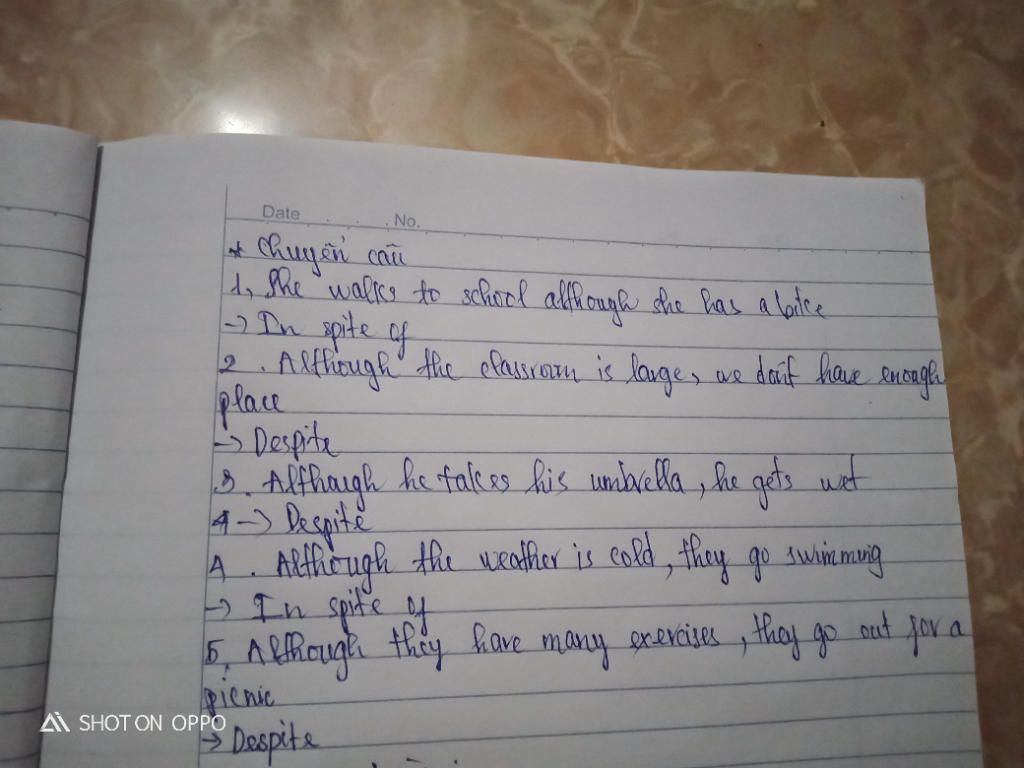 Date . . . No.
* Chuyển câu
1, She walks to school although she has a bike
-> In spite of
2. Although the classroom is large, we don't have enough
place
-> Despite
3. Although he takes his umbrella, he gets wet
4 -> Despite
4. Although the weather is cold, they go swimming
-> In spite of
5. Although they have many exercises, they go out for a
picnic
-> Despite
SHOT ON OPPO